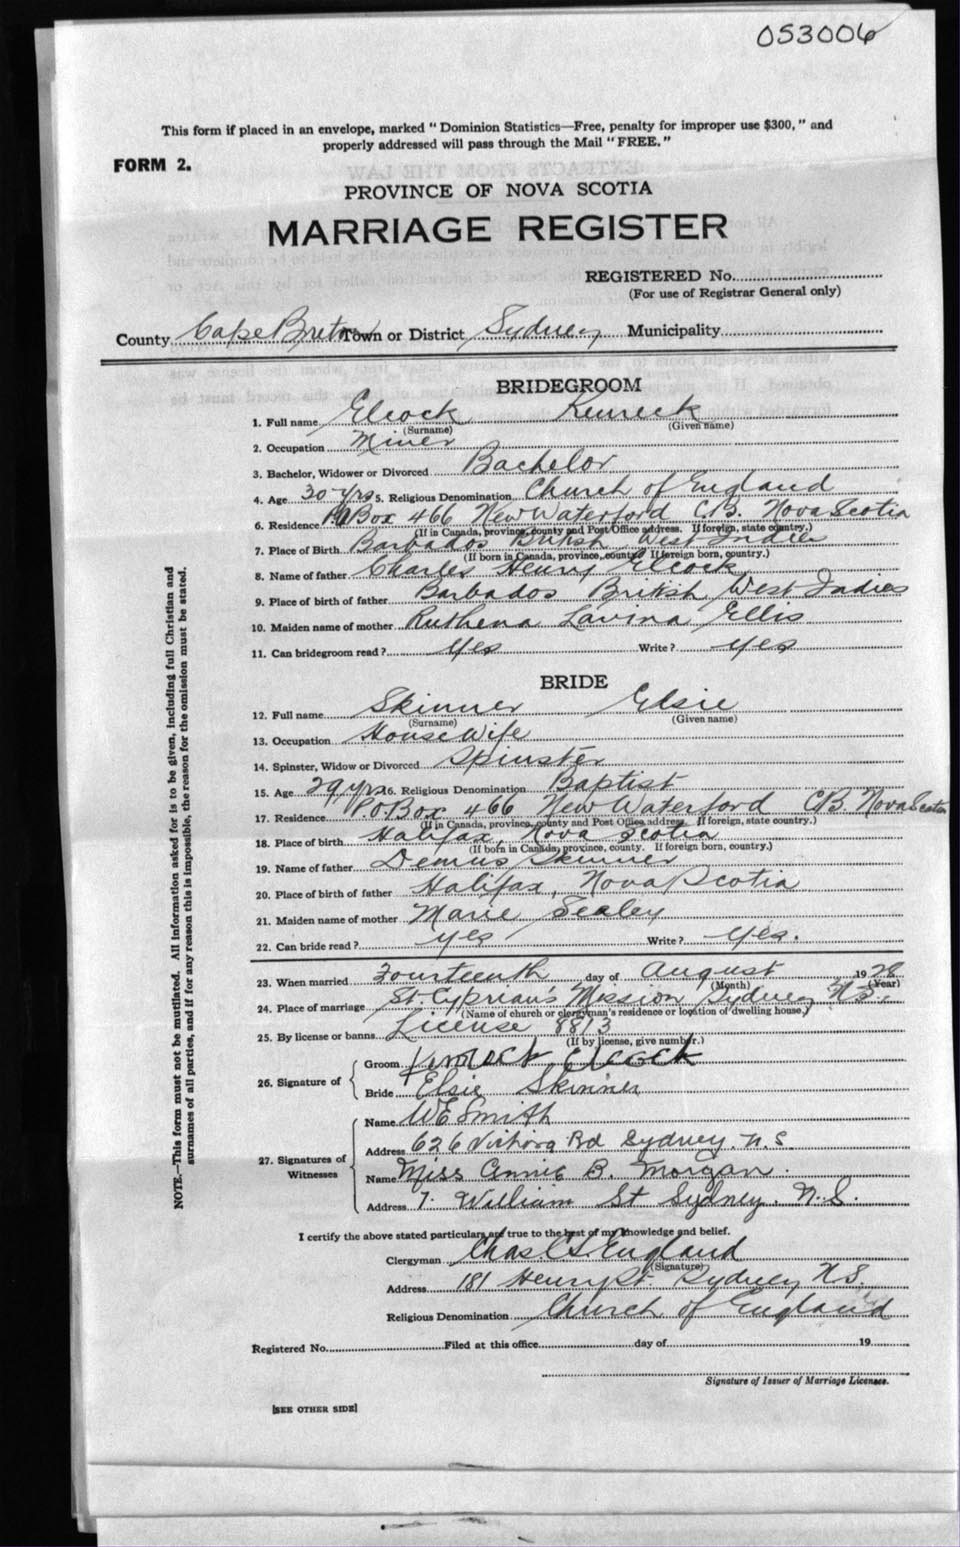 053006
This form if placed in an envelope, marked "Dominion Statistics—Free, penalty for improper use $300," and
properly addressed will pass through the Mail "FREE."
FORM 2.
PROVINCE OF NOVA SCOTIA
MARRIAGE REGISTER
REGISTERED No.
(For use of Registrar General only)
County Cape Breton Town or District Sydney Municipality
BRIDEGROOM
1. Full name Elcock Kenreck
(Surname) (Given name)
2. Occupation Miner
3. Bachelor, Widower or Divorced Bachelor
4. Age 30 yrs 5. Religious Denomination Church of England
6. Residence P.O Box 466 New Waterford C.B. Nova Scotia
(If in Canada, province, county and Post Office address. If foreign, state country.)
7. Place of Birth Barbados British West Indies
(If born in Canada, province, county. If foreign born, country.)
8. Name of father Charles Henry Elcock
9. Place of birth of father Barbados British West Indies
10. Maiden name of mother Ruthena Lavina Ellis
11. Can bridegroom read? Yes Write? Yes
BRIDE
12. Full name Skinner Elsie
(Surname) (Given name)
13. Occupation House Wife
14. Spinster, Widow or Divorced Spinster
15. Age 29 yrs 16. Religious Denomination Baptist
17. Residence P.O Box 466 New Waterford C.B. Nova Scotia
(If in Canada, province, county and Post Office address. If foreign, state country.)
18. Place of birth Halifax, Nova Scotia
(If born in Canada, province, county. If foreign born, country.)
19. Name of father Demus Skinner
20. Place of birth of father Halifax, Nova Scotia
21. Maiden name of mother Marie Sealey
22. Can bride read? yes Write? Yes.
23. When married Fourteenth day of August 1928
(Month) (Year)
24. Place of marriage St. Cyprian's Mission Sydney N.S.
(Name of church or clergyman's residence or location of dwelling house.)
25. By license or banns License 8813
(If by license, give number.)
26. Signature of
Groom Elcock
Bride Elsie Skinner
27. Signatures of Witnesses
Name W E Smith
Address 626 Victoria Rd Sydney. N.S
Name Miss Annie B. Morgan.
Address 7. William St Sydney. N.S.
I certify the above stated particulars are true to the best of my knowledge and belief.
Clergyman Chas C S England
(Signature)
Address 181 Henry St. Sydney N.S.
Religious Denomination Church of England
Registered No. Filed at this office day of 19
Signature of Issuer of Marriage Licenses.
[SEE OTHER SIDE]
NOTE.—This form must not be mutilated. All information asked for is to be given, including full Christian and
surnames of all parties, and if for any reason this is impossible, the reason for the omission must be stated.